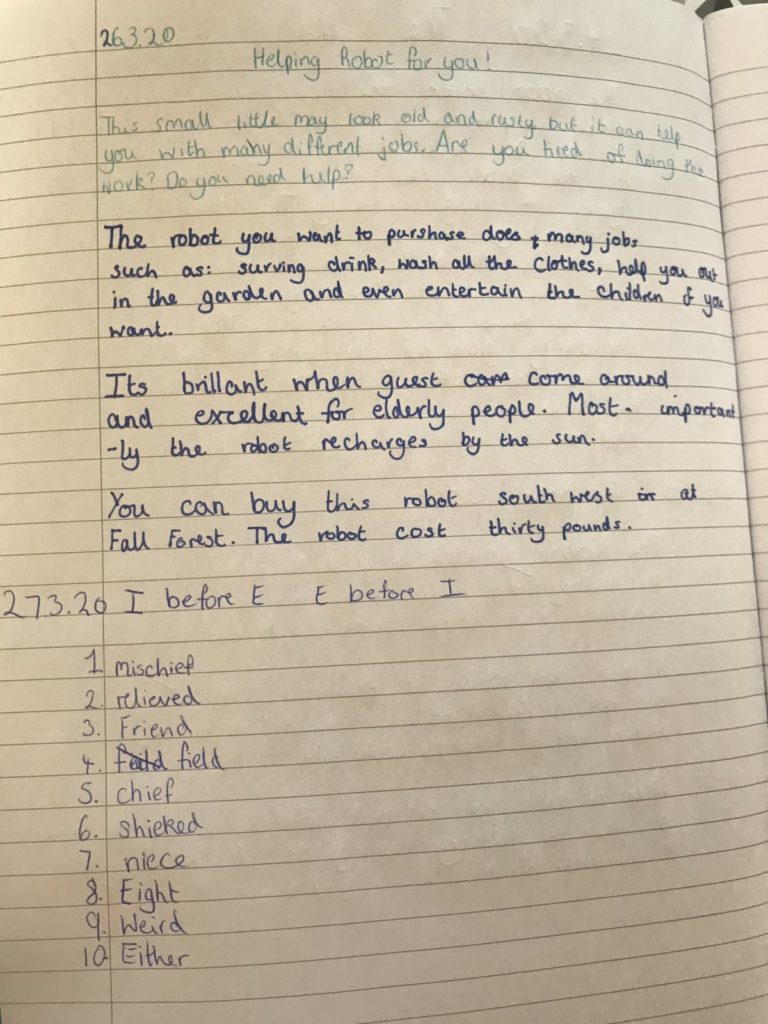 26.3.20
Helping Robot for you!
This small little may look old and rusty but it can help
you with many different jobs. Are you tired of doing the
work? Do you need help?
The robot you want to purshase does many jobs
such as: surving drink, wash all the clothes, help you out
in the garden and even entertain the children if you
want.
Its brillant when guest come around
and excellent for elderly people. Most important
-ly the robot recharges by the sun.
You can buy this robot south west at
Fall Forest. The robot cost thirty pounds.
27.3.20 I before E E before I
1. mischief
2. relieved
3. Friend
4. field
5. chief
6. shieked
7. niece
8. Eight
9. Weird
10 Either